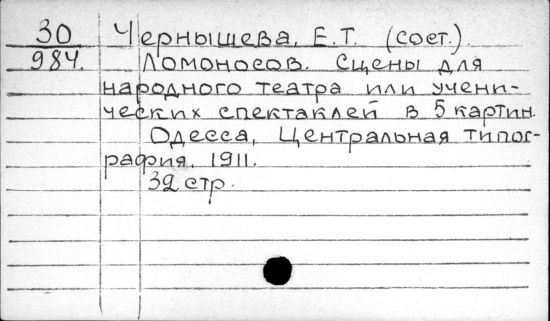 30 Чернышева, Е.Т. (сост.).
984. Ломоносов. Сцены для
народного театра или учени-
ческих спектаклей в 5 картин.
Одесса, Центральная типог-
рафия, 1911.
32 стр.